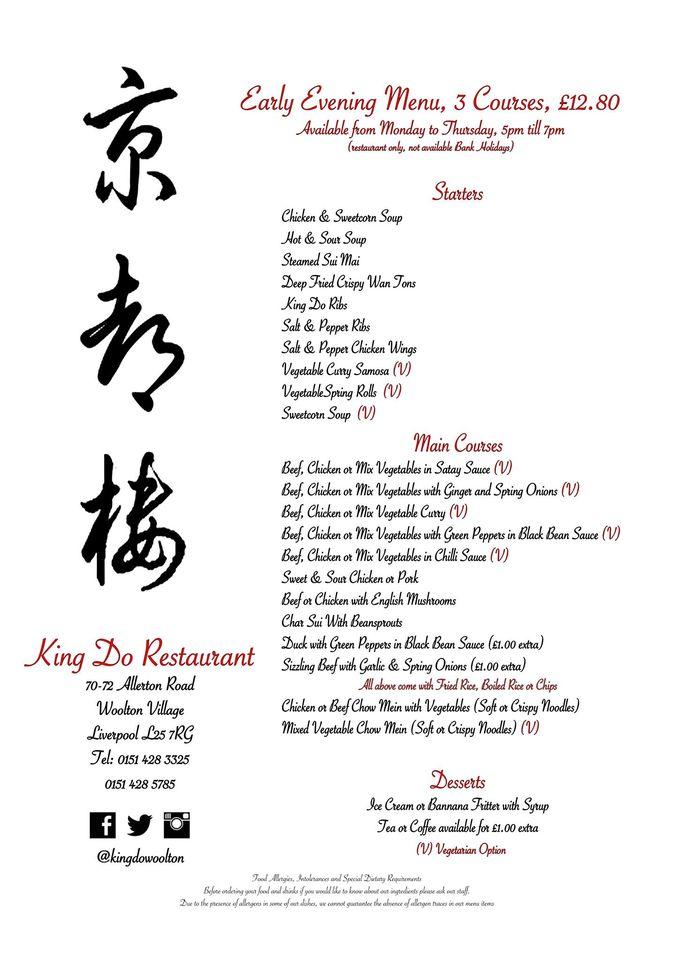 京
都
楼
Early Evening Menu, 3 Courses, £12.80
Available from Monday to Thursday, 5pm till 7pm
(restaurant only, not available Bank Holidays)
Starters
Chicken & Sweetcorn Soup
Hot & Sour Soup
Steamed Sui Mai
Deep Fried Crispy Wan Tons
King Do Ribs
Salt & Pepper Ribs
Salt & Pepper Chicken Wings
Vegetable Curry Samosa (V)
VegetableSpring Rolls (V)
Sweetcorn Soup (V)
Main Courses
Beef, Chicken or Mix Vegetables in Satay Sauce (V)
Beef, Chicken or Mix Vegetables with Ginger and Spring Onions (V)
Beef, Chicken or Mix Vegetable Curry (V)
Beef, Chicken or Mix Vegetables with Green Peppers in Black Bean Sauce (V)
Beef, Chicken or Mix Vegetables in Chilli Sauce (V)
Sweet & Sour Chicken or Pork
Beef or Chicken with English Mushrooms
Char Sui With Beansprouts
Duck with Green Peppers in Black Bean Sauce (£1.00 extra)
Sizzling Beef with Garlic & Spring Onions (£1.00 extra)
All above come with Fried Rice, Boiled Rice or Chips
Chicken or Beef Chow Mein with Vegetables (Soft or Crispy Noodles)
Mixed Vegetable Chow Mein (Soft or Crispy Noodles) (V)
Desserts
Ice Cream or Bannana Fritter with Syrup
Tea or Coffee available for £1.00 extra
(V) Vegetarian Option
King Do Restaurant
70-72 Allerton Road
Woolton Village
Liverpool L25 7RG
Tel: 0151 428 3325
0151 428 5785
@kingdowoolton
Food Allergies, Intolerances and Special Dietary Requirements
Before ordering your food and drinks if you would like to know about our ingredients please ask our staff.
Due to the presence of allergens in some of our dishes, we cannot guarantee the absence of allergen traces in our menu items